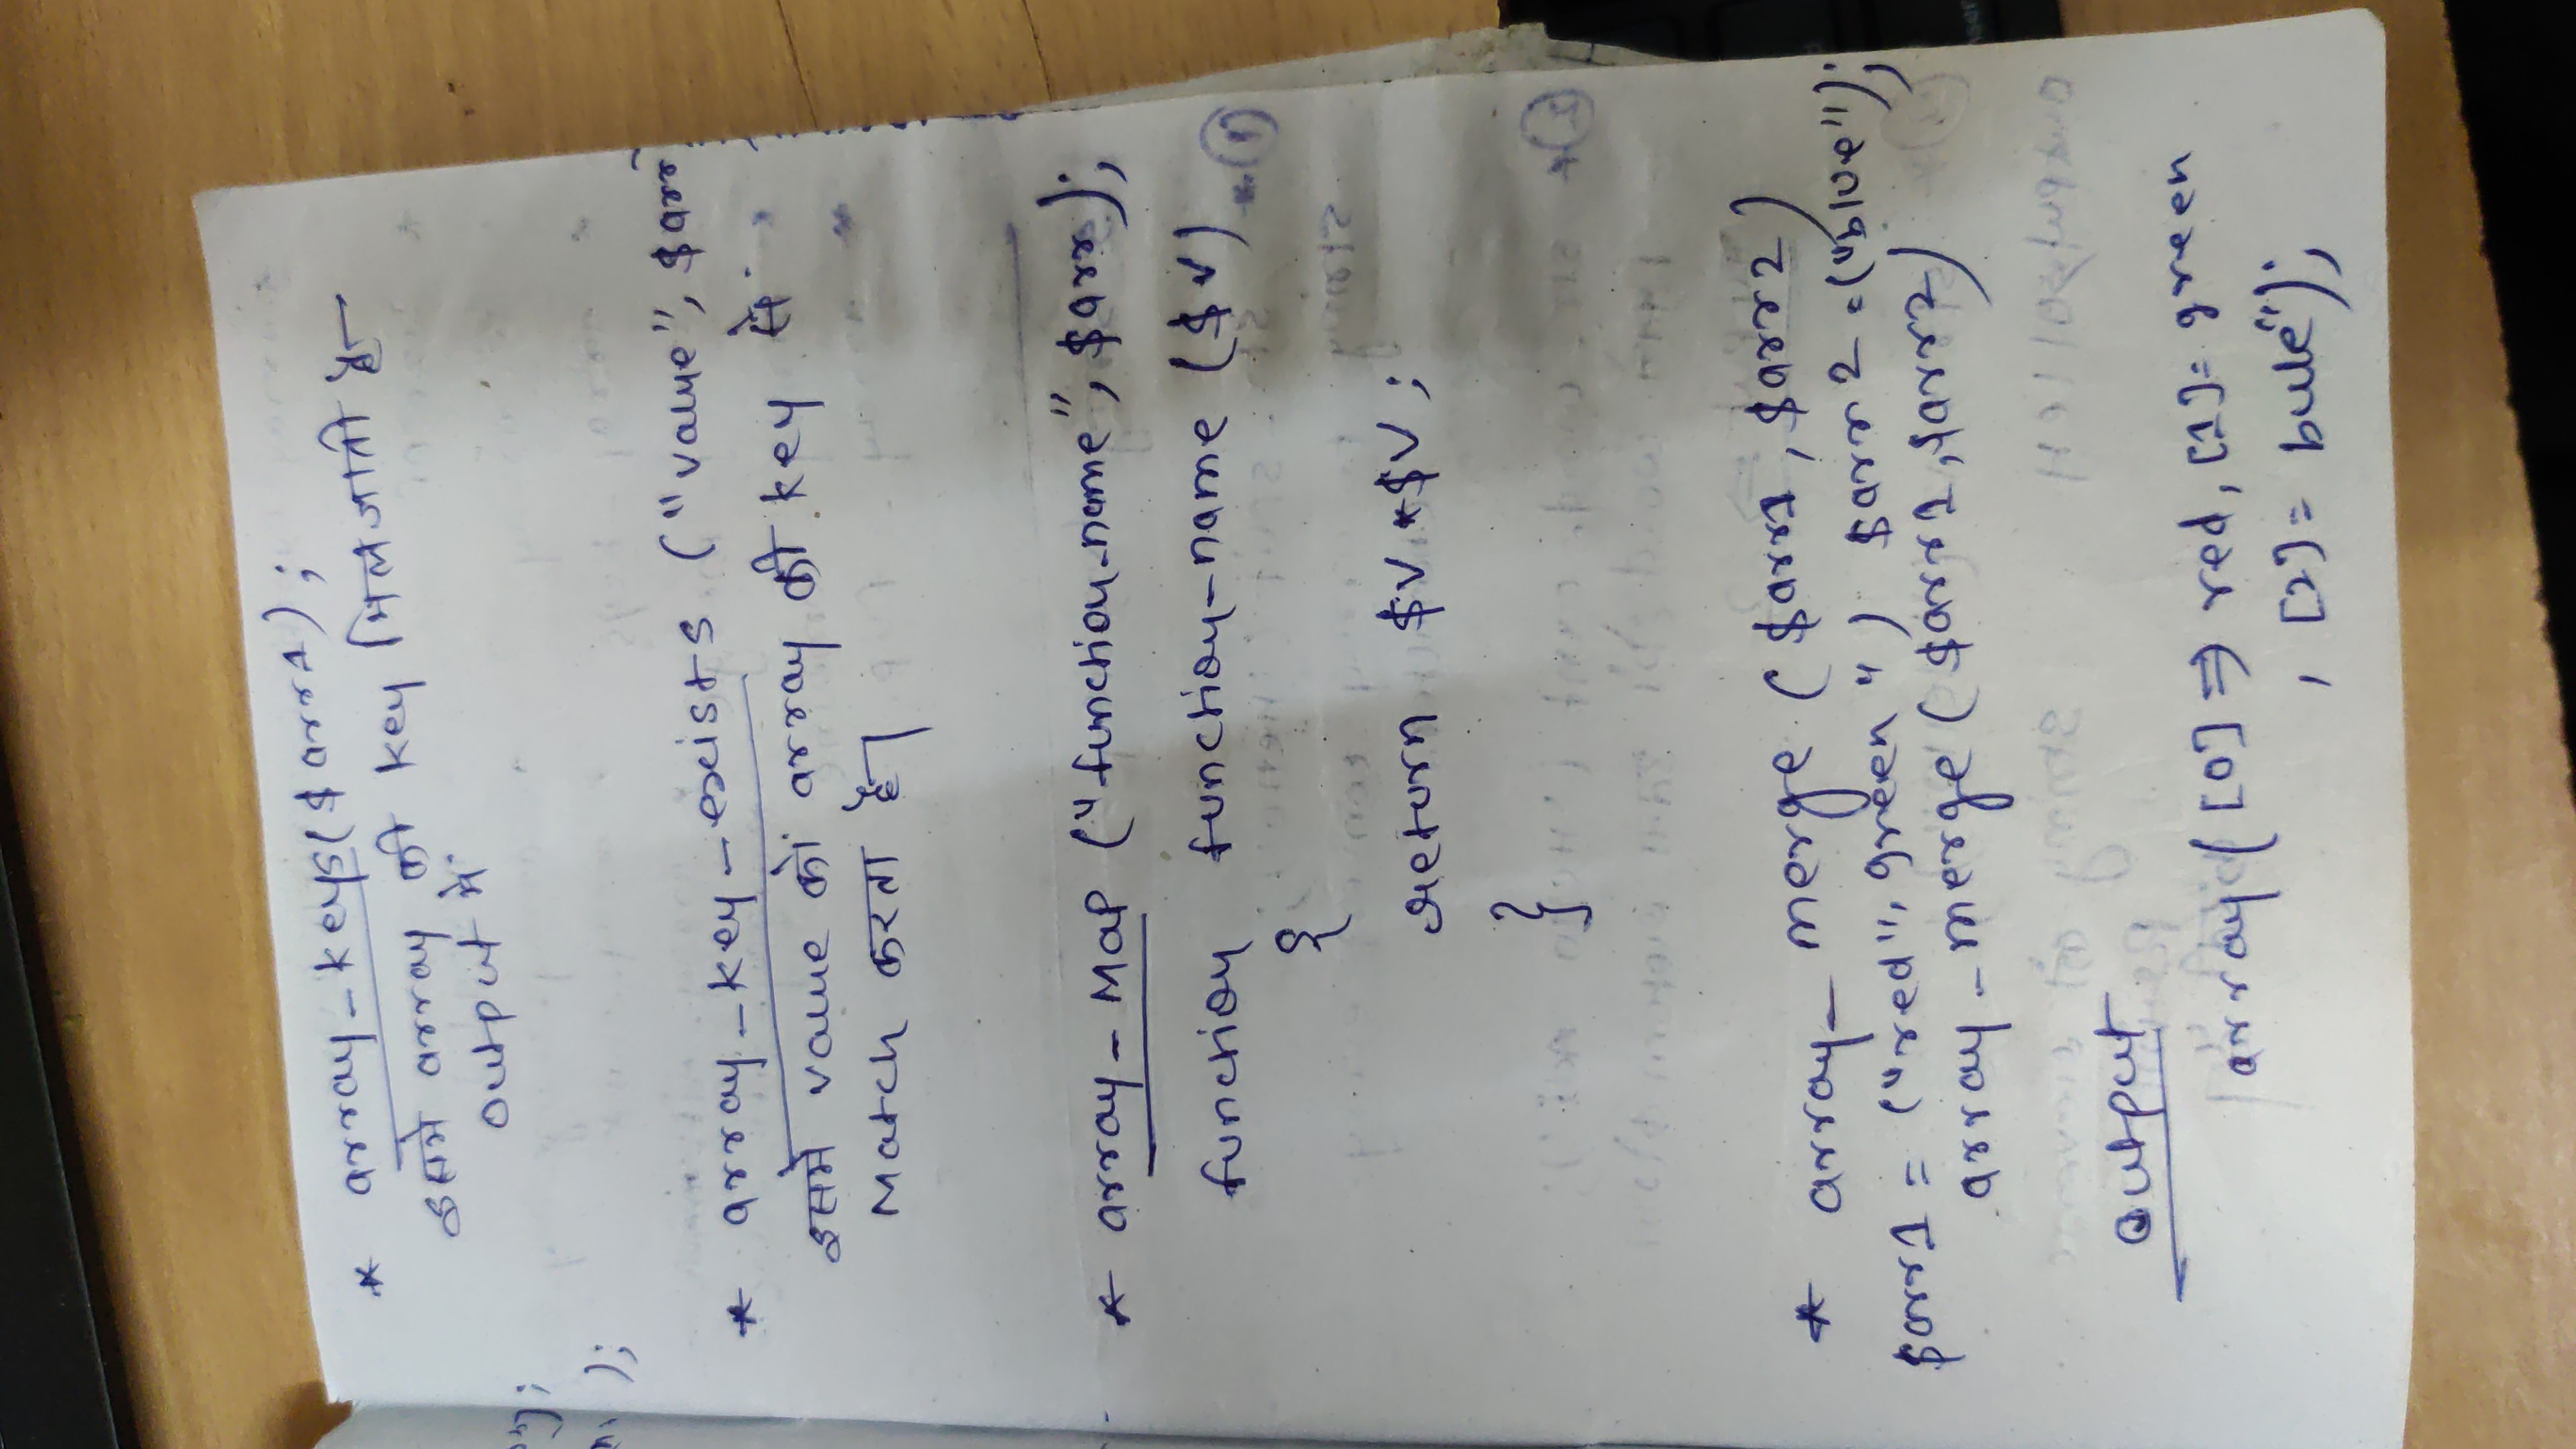 * array_keys($arr1);
इसमे array की key मिलजाती है
output मे
);
* array_key_exists ("value", $arr
इसमे value को array की key से
Match करता है।
* array_Map ("function_name", $arr);
function function_name ($v)
{
return $v*$v;
}
* array_merge ($arr1, $arr2)
$arr1 = ("red", green") $arr2 = ("blue");
array_merge ($arr1, $arr2)
Output
array ([0] => red, [1]= green
, [2]= bule");